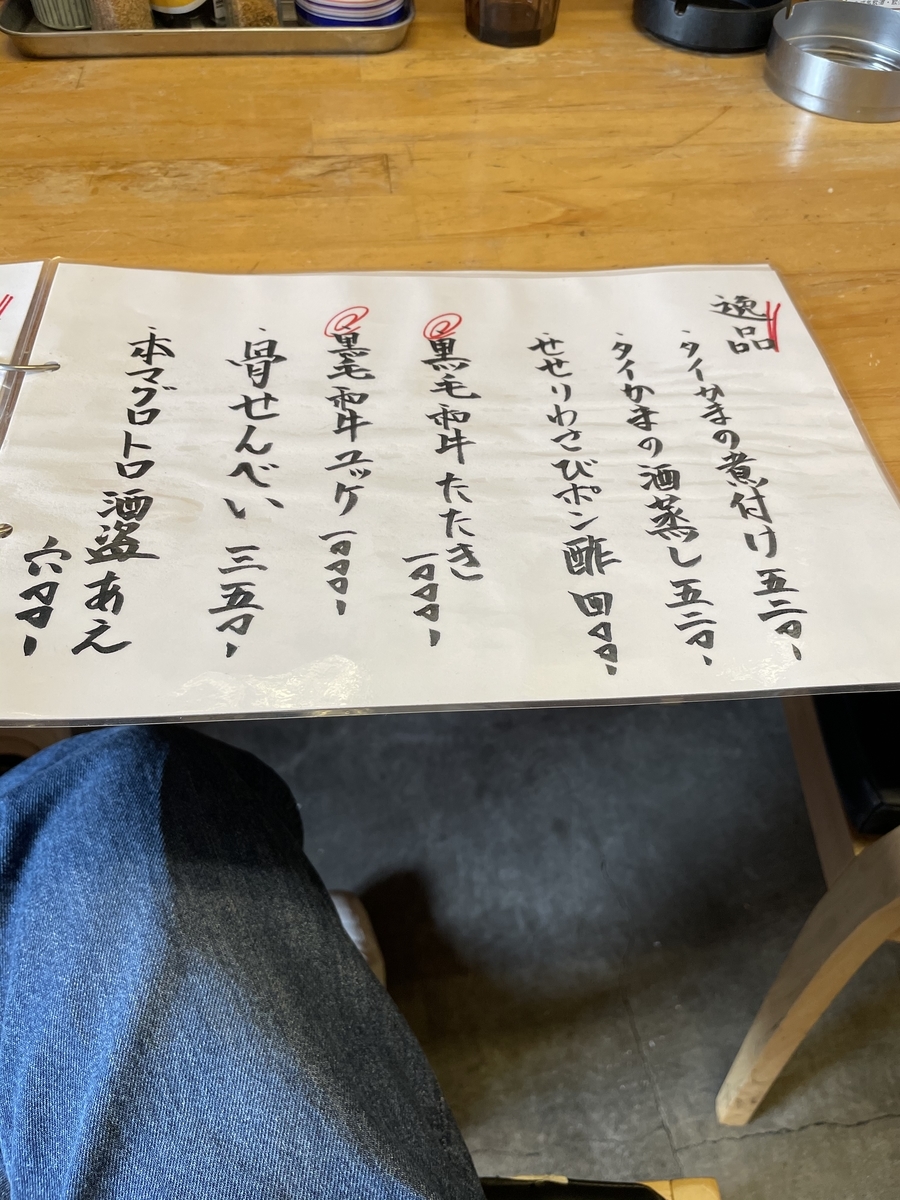 逸品
・タイかまの煮付け 五二〇、
・タイかまの酒蒸し 五二〇、
・せせりわさびポン酢 四〇〇、
黒毛和牛たたき 一〇〇〇、
黒毛和牛ユッケ 一〇〇〇、
・骨せんべい 三五〇、
・本マグロトロ酒盗あえ
六〇〇、